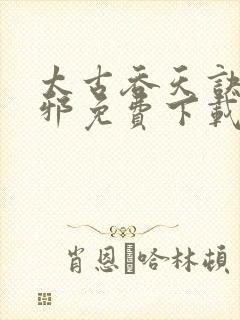 太古吞天诀
邪免費下載
肖恩·哈林頓